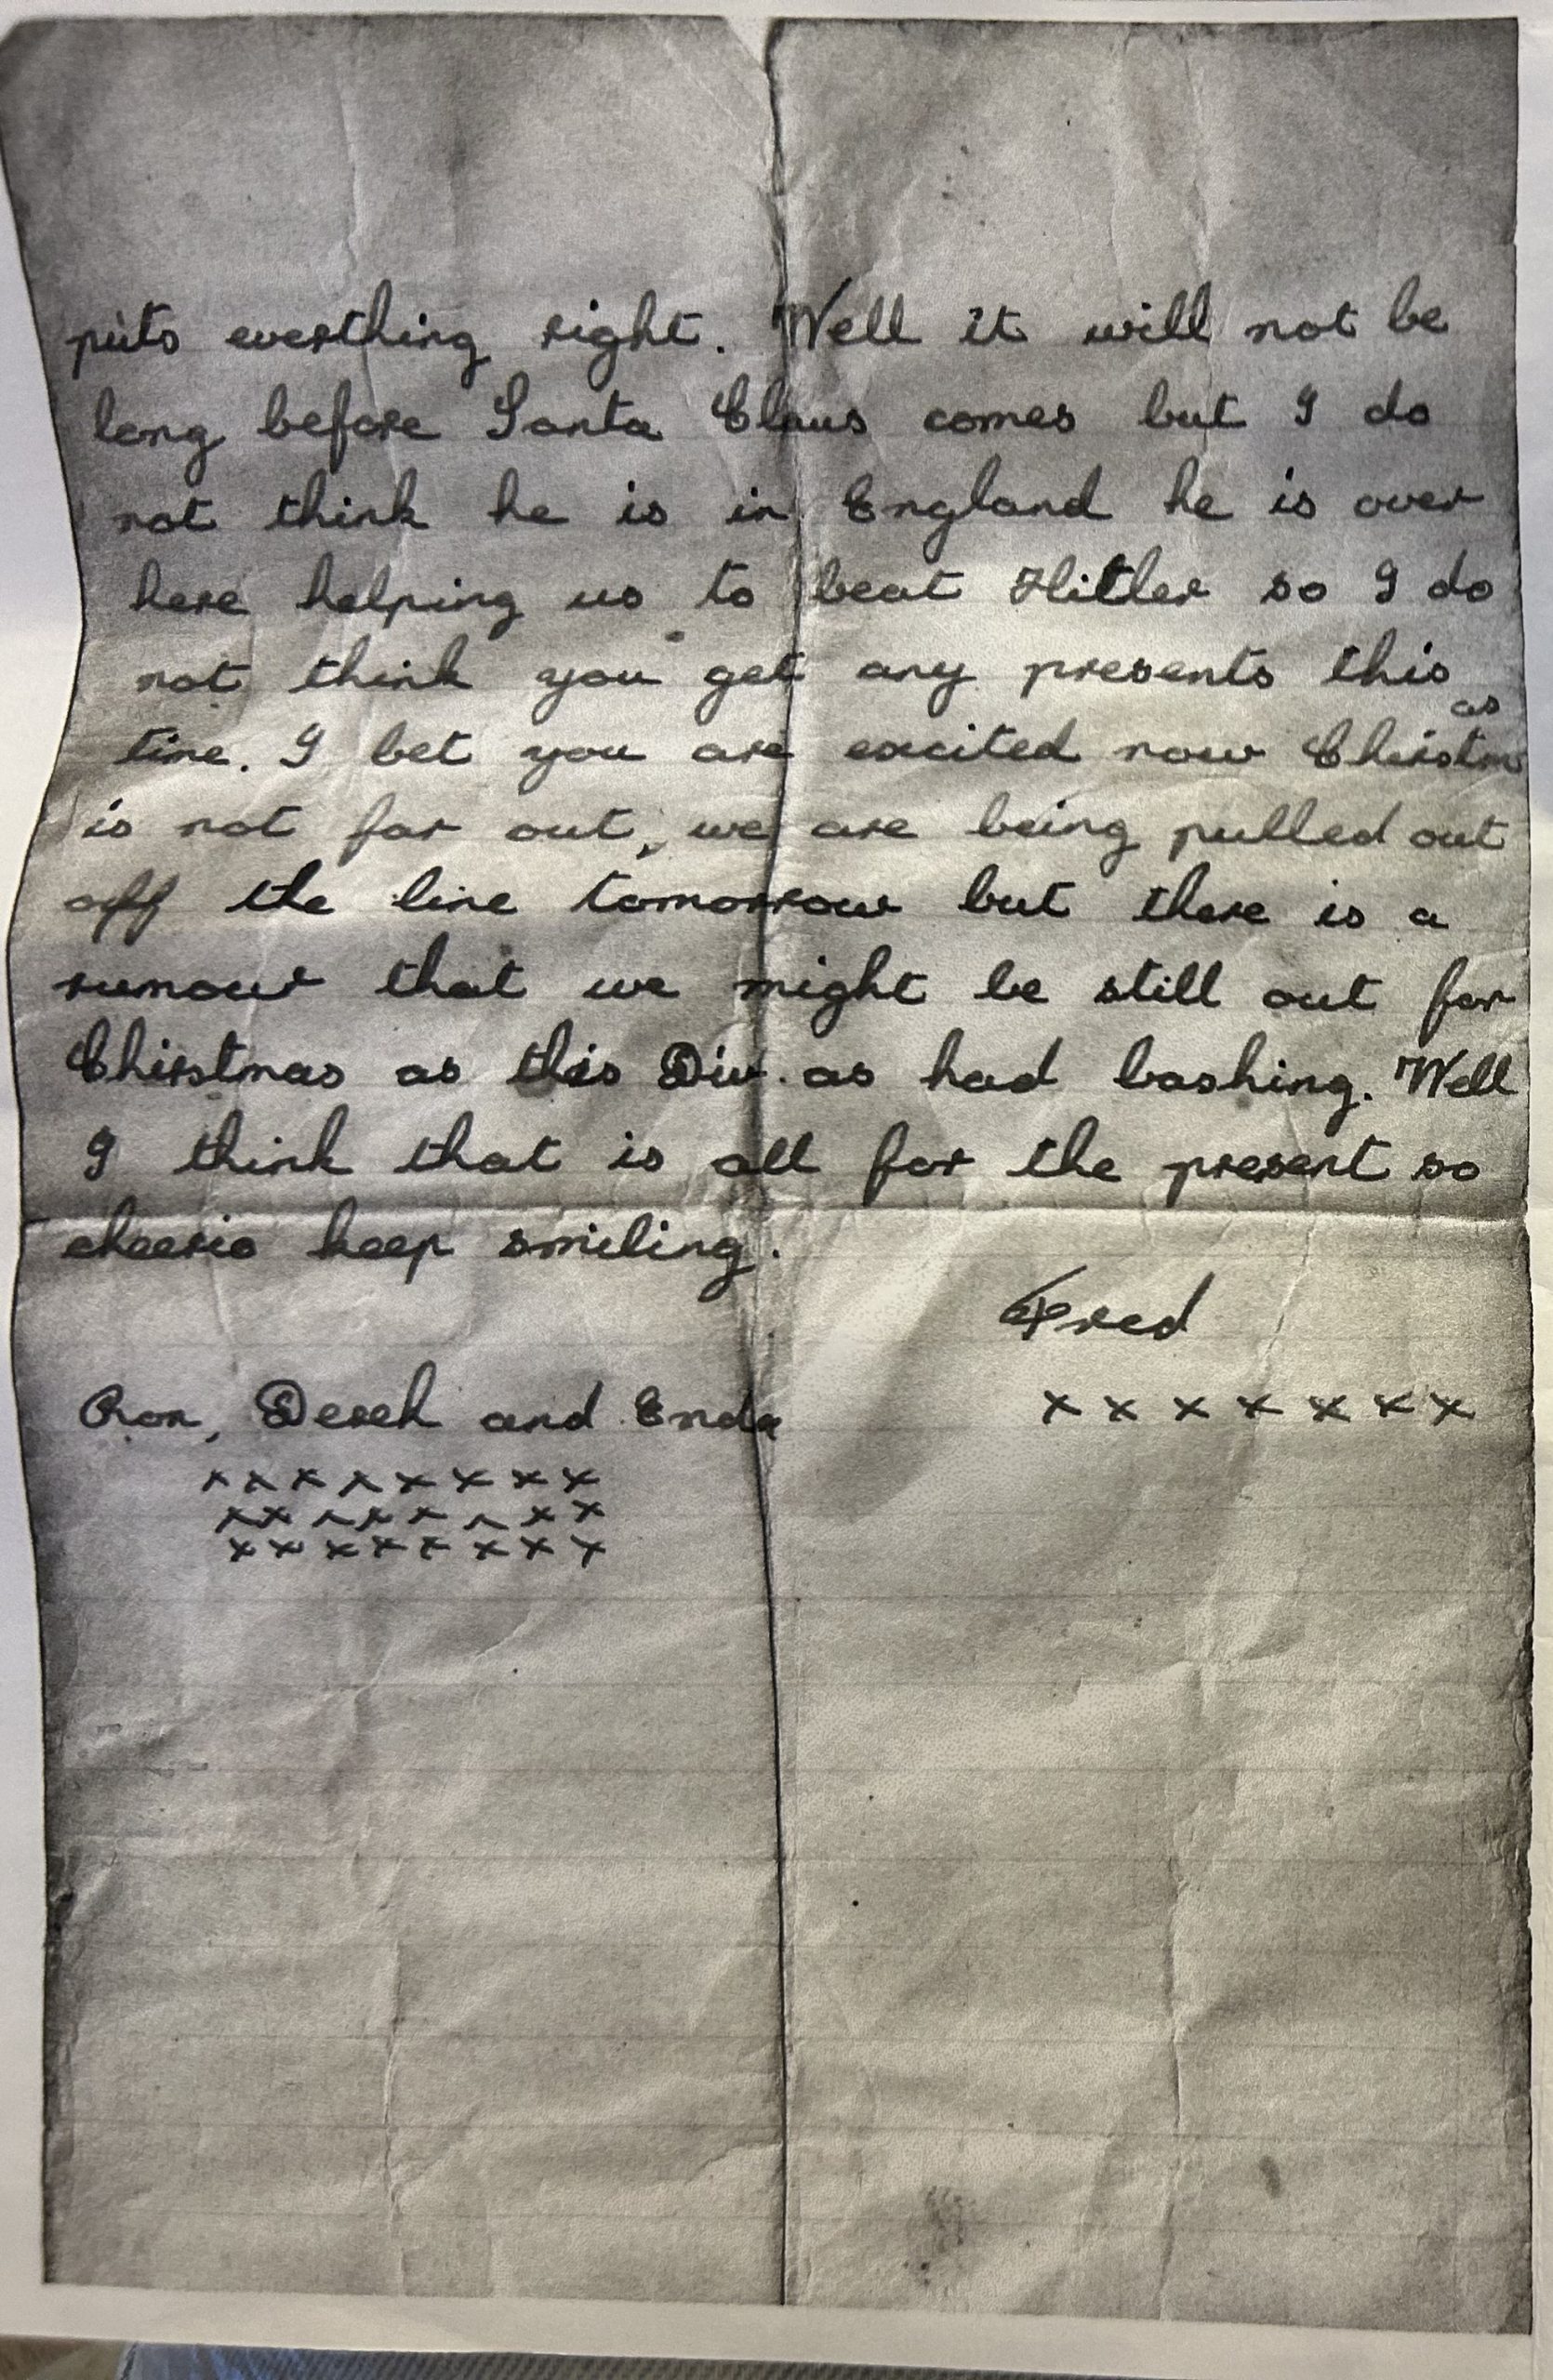 puts everthing right. Well it will not be
long before Santa Claus comes but I do
not think he is in England he is over
here helping us to beat Hitler so I do
not think you get any presents this
time. I bet you are excited now Chirstmas
is not far out, we are being pulled out
off the line tomorrow but there is a
rumour that we might be still out for
Chirstmas as this Div. as had bashing. Well
I think that is all for the present so
cheerio keep smiling.
Fred
x x x x x x x
Ron, Derek and Enda
x x x x x x x x
x x x x x x x x
x x x x x x x x